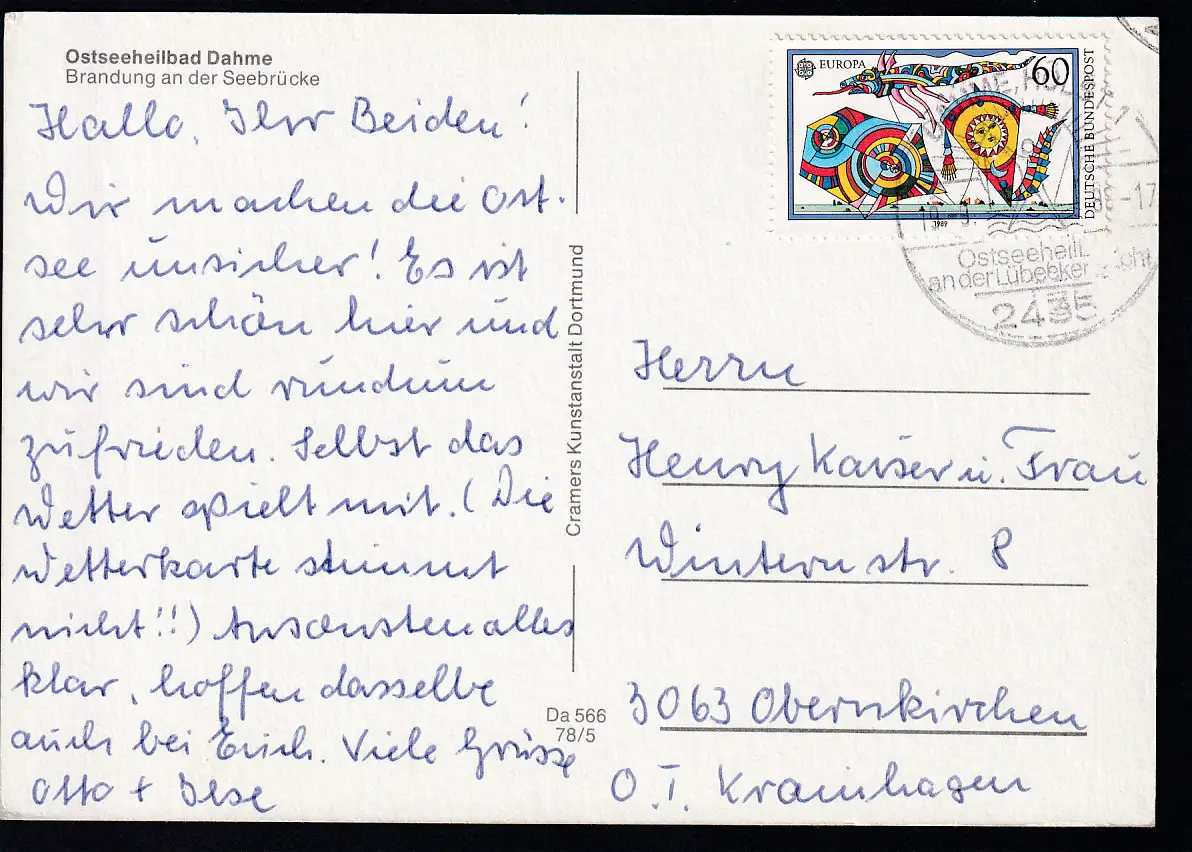 Ostseeheilbad Dahme
Brandung an der Seebrücke
Hallo, Ihr Beiden!
Wir machen die Ost-
see unsicher! Es ist
sehr schön hier und
wir sind rundum
zufrieden. Selbst das
Wetter spielt mit. (Die
Wetterkarte stimmt
nicht!!) Ansonsten alles
klar, hoffen dasselbe
auch bei Euch. Viele Grüsse
Otto + Ilse
Cramers Kunstanstalt Dortmund
Da 566
78/5
EUROPA
60
DEUTSCHE BUNDESPOST
1989
Ostseeheil
an der Lübecker
2435
Herrn
Henry Kaiser u. Frau
Winternstr. 8
3063 Obernkirchen
O.T. Krainhagen